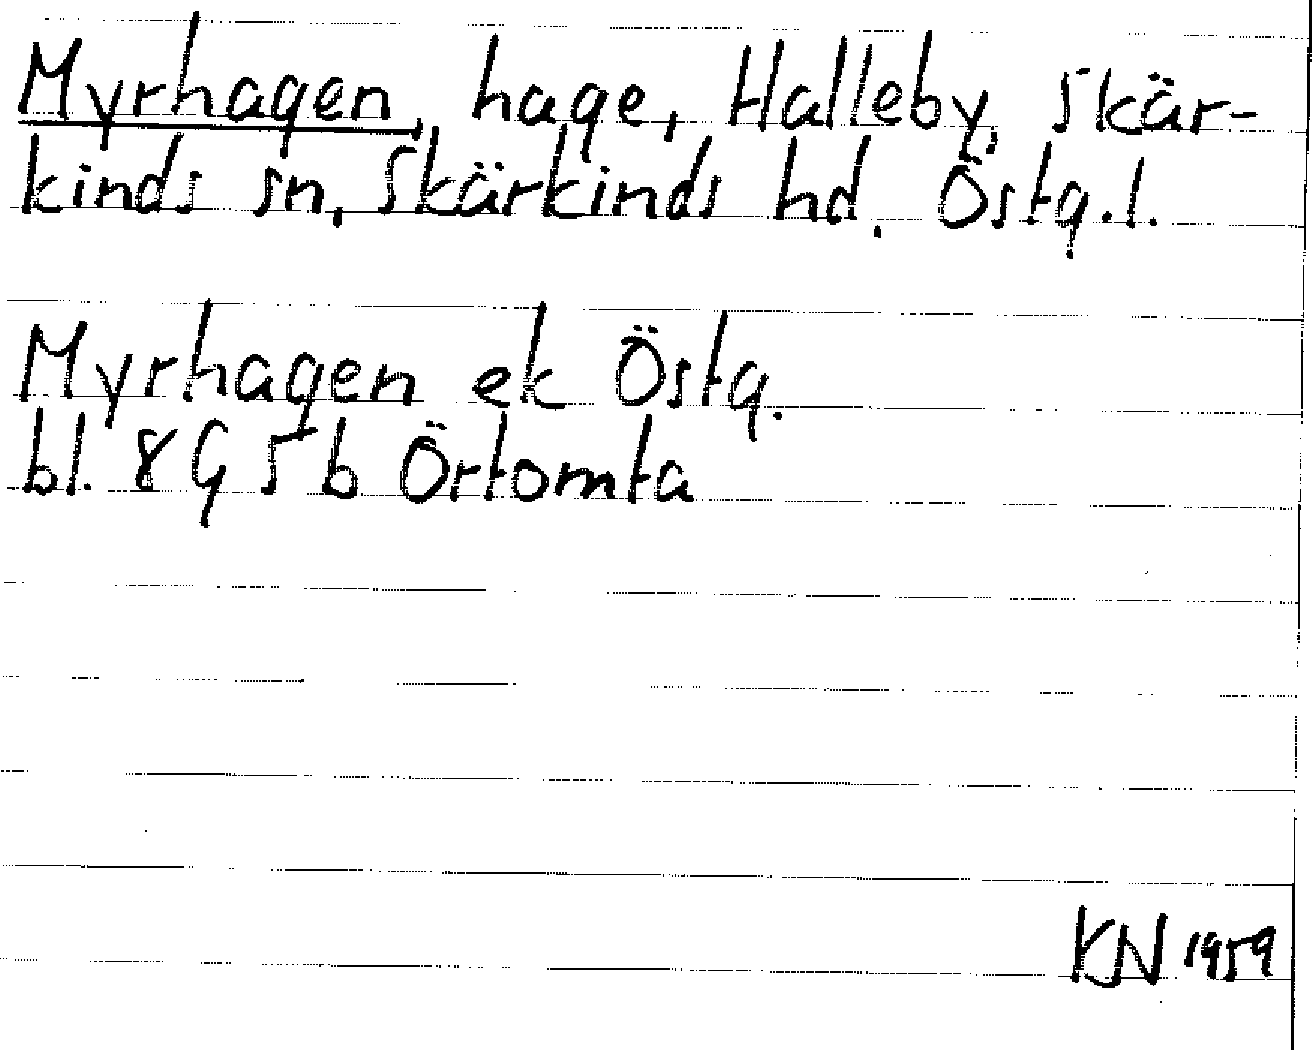 Myrhagen, hage, Halleby, Skär-
kinds sn, Skärkinds hd. Östg.l.
Myrhagen ek Östg.
bl. 8G 5b Örtomta
KN 1959